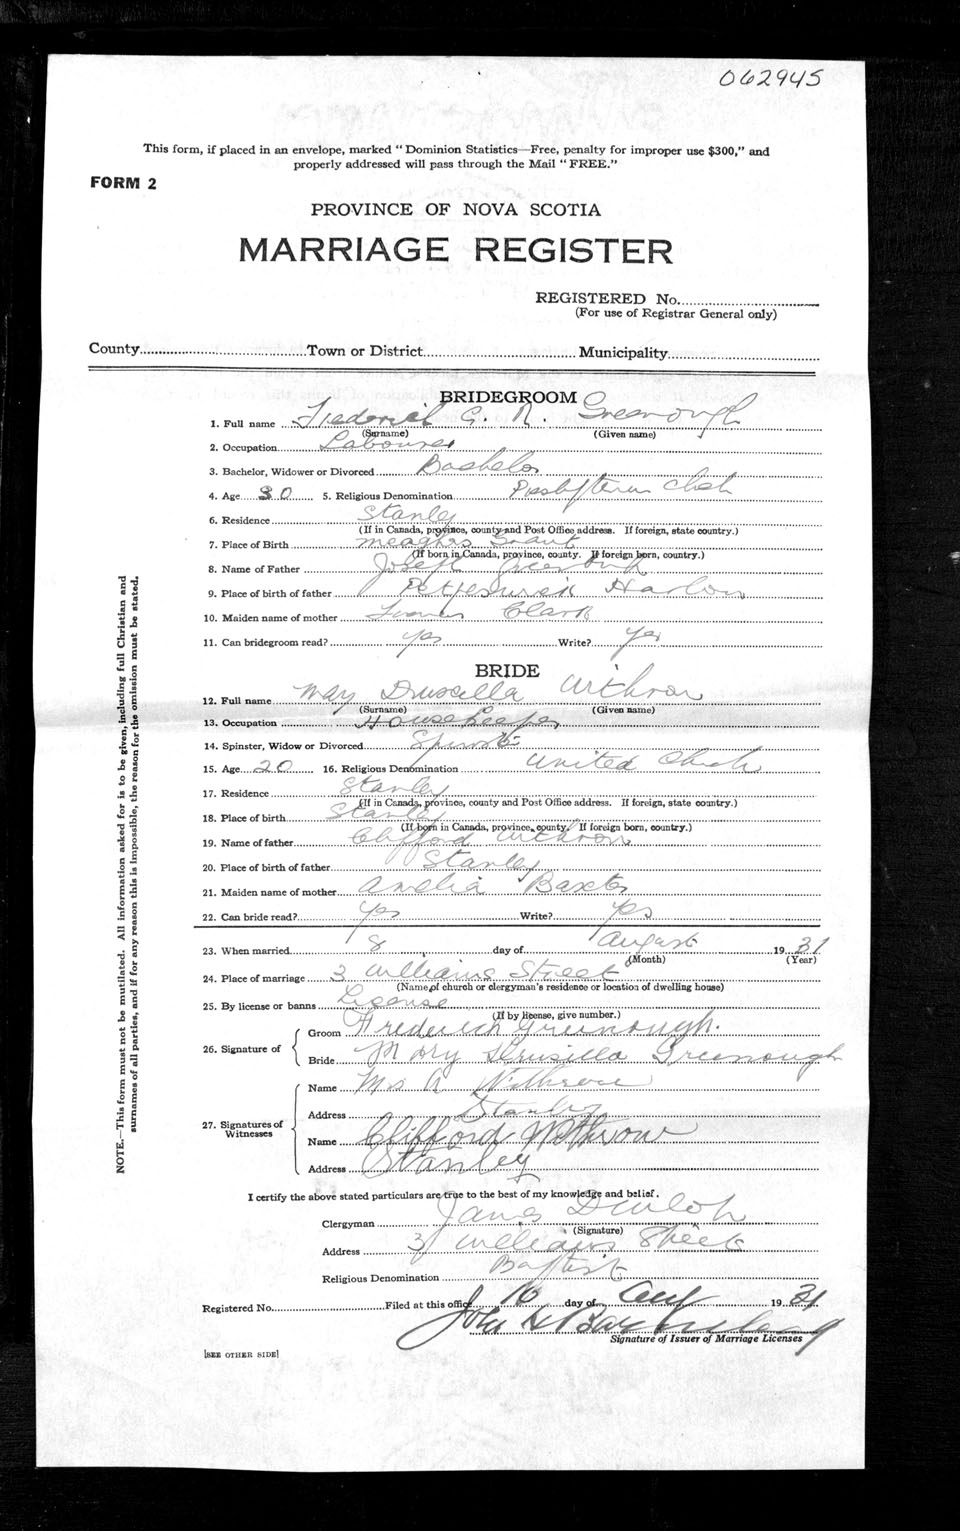 062945
This form, if placed in an envelope, marked "Dominion Statistics—Free, penalty for improper use $300," and
properly addressed will pass through the Mail "FREE."
FORM 2
PROVINCE OF NOVA SCOTIA
MARRIAGE REGISTER
REGISTERED No.
(For use of Registrar General only)
County Town or District Municipality
BRIDEGROOM
1. Full name Frederick G. R. Greenough
(Surname) (Given name)
2. Occupation Labourer
3. Bachelor, Widower or Divorced Bachelor
4. Age 30 5. Religious Denomination Presbyterian Chch
6. Residence Stanley
(If in Canada, province, county and Post Office address. If foreign, state country.)
7. Place of Birth Meaghers Grant
(If born in Canada, province, county. If foreign born, country.)
8. Name of Father Joseph Greenough
9. Place of birth of father Petpeswick Harbor
10. Maiden name of mother Clark
11. Can bridegroom read? yes Write? yes
BRIDE
12. Full name May Druscilla Withrow
(Surname) (Given name)
13. Occupation Housekeeper
14. Spinster, Widow or Divorced Spinster
15. Age 20 16. Religious Denomination United Church
17. Residence Stanley
(If in Canada, province, county and Post Office address. If foreign, state country.)
18. Place of birth Stanley
(If born in Canada, province, county. If foreign born, country.)
19. Name of father Clifford Withrow
20. Place of birth of father Stanley
21. Maiden name of mother Amelia Baxter
22. Can bride read? yes Write? yes
23. When married 8 day of August 19 31
(Month) (Year)
24. Place of marriage 3 Williams Street
(Name of church or clergyman's residence or location of dwelling house)
25. By license or banns License
(If by license, give number.)
26. Signature of
Groom Frederick Greenough.
Bride Mary Drusilla Greenough
27. Signatures of Witnesses
Name Mrs A Withrow
Address Stanley
Name Clifford Withrow
Address Stanley
I certify the above stated particulars are true to the best of my knowledge and belief.
Clergyman James Dunlop
(Signature)
Address 3 Williams Street
Religious Denomination Baptist
Registered No. Filed at this office 16 day of Aug 19 31
John
Signature of Issuer of Marriage Licenses
[SEE OTHER SIDE]
NOTE.—This form must not be mutilated. All information asked for is to be given, including full Christian and
surnames of all parties, and if for any reason this is impossible, the reason for the omission must be stated.